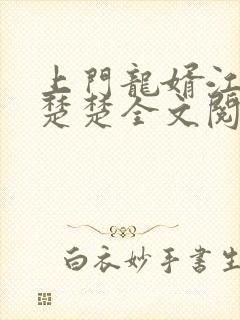 上門龍婿江
楚楚全文閱
白衣妙手書生